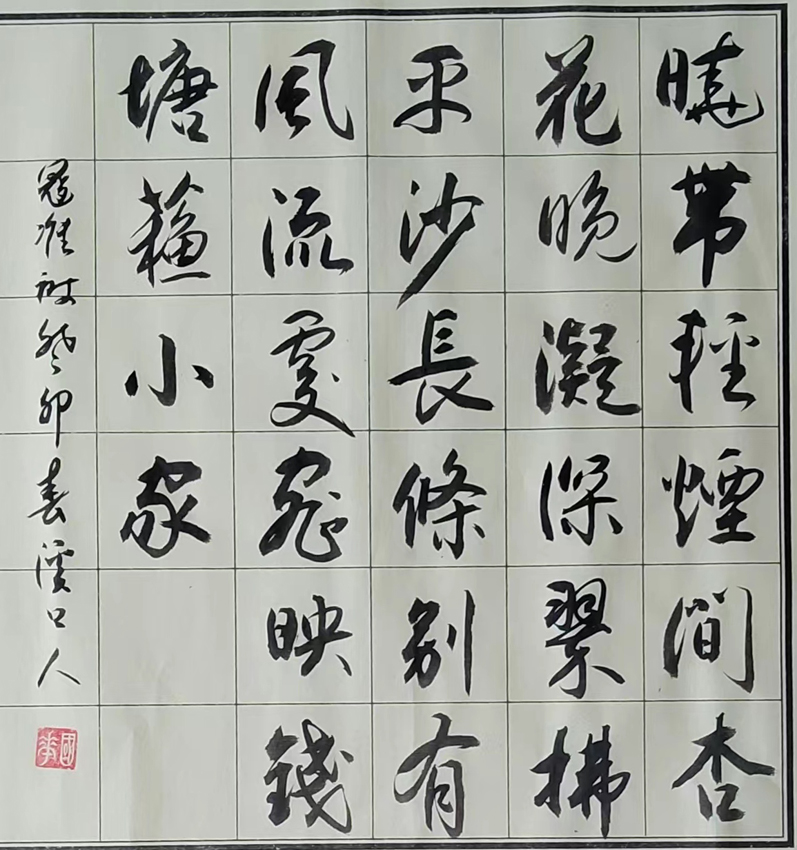 曉帶輕煙間杏
花晚凝深翠拂
平沙長條別有
風流處密映錢
塘蘓小家
寇準詩癸卯春溪口人